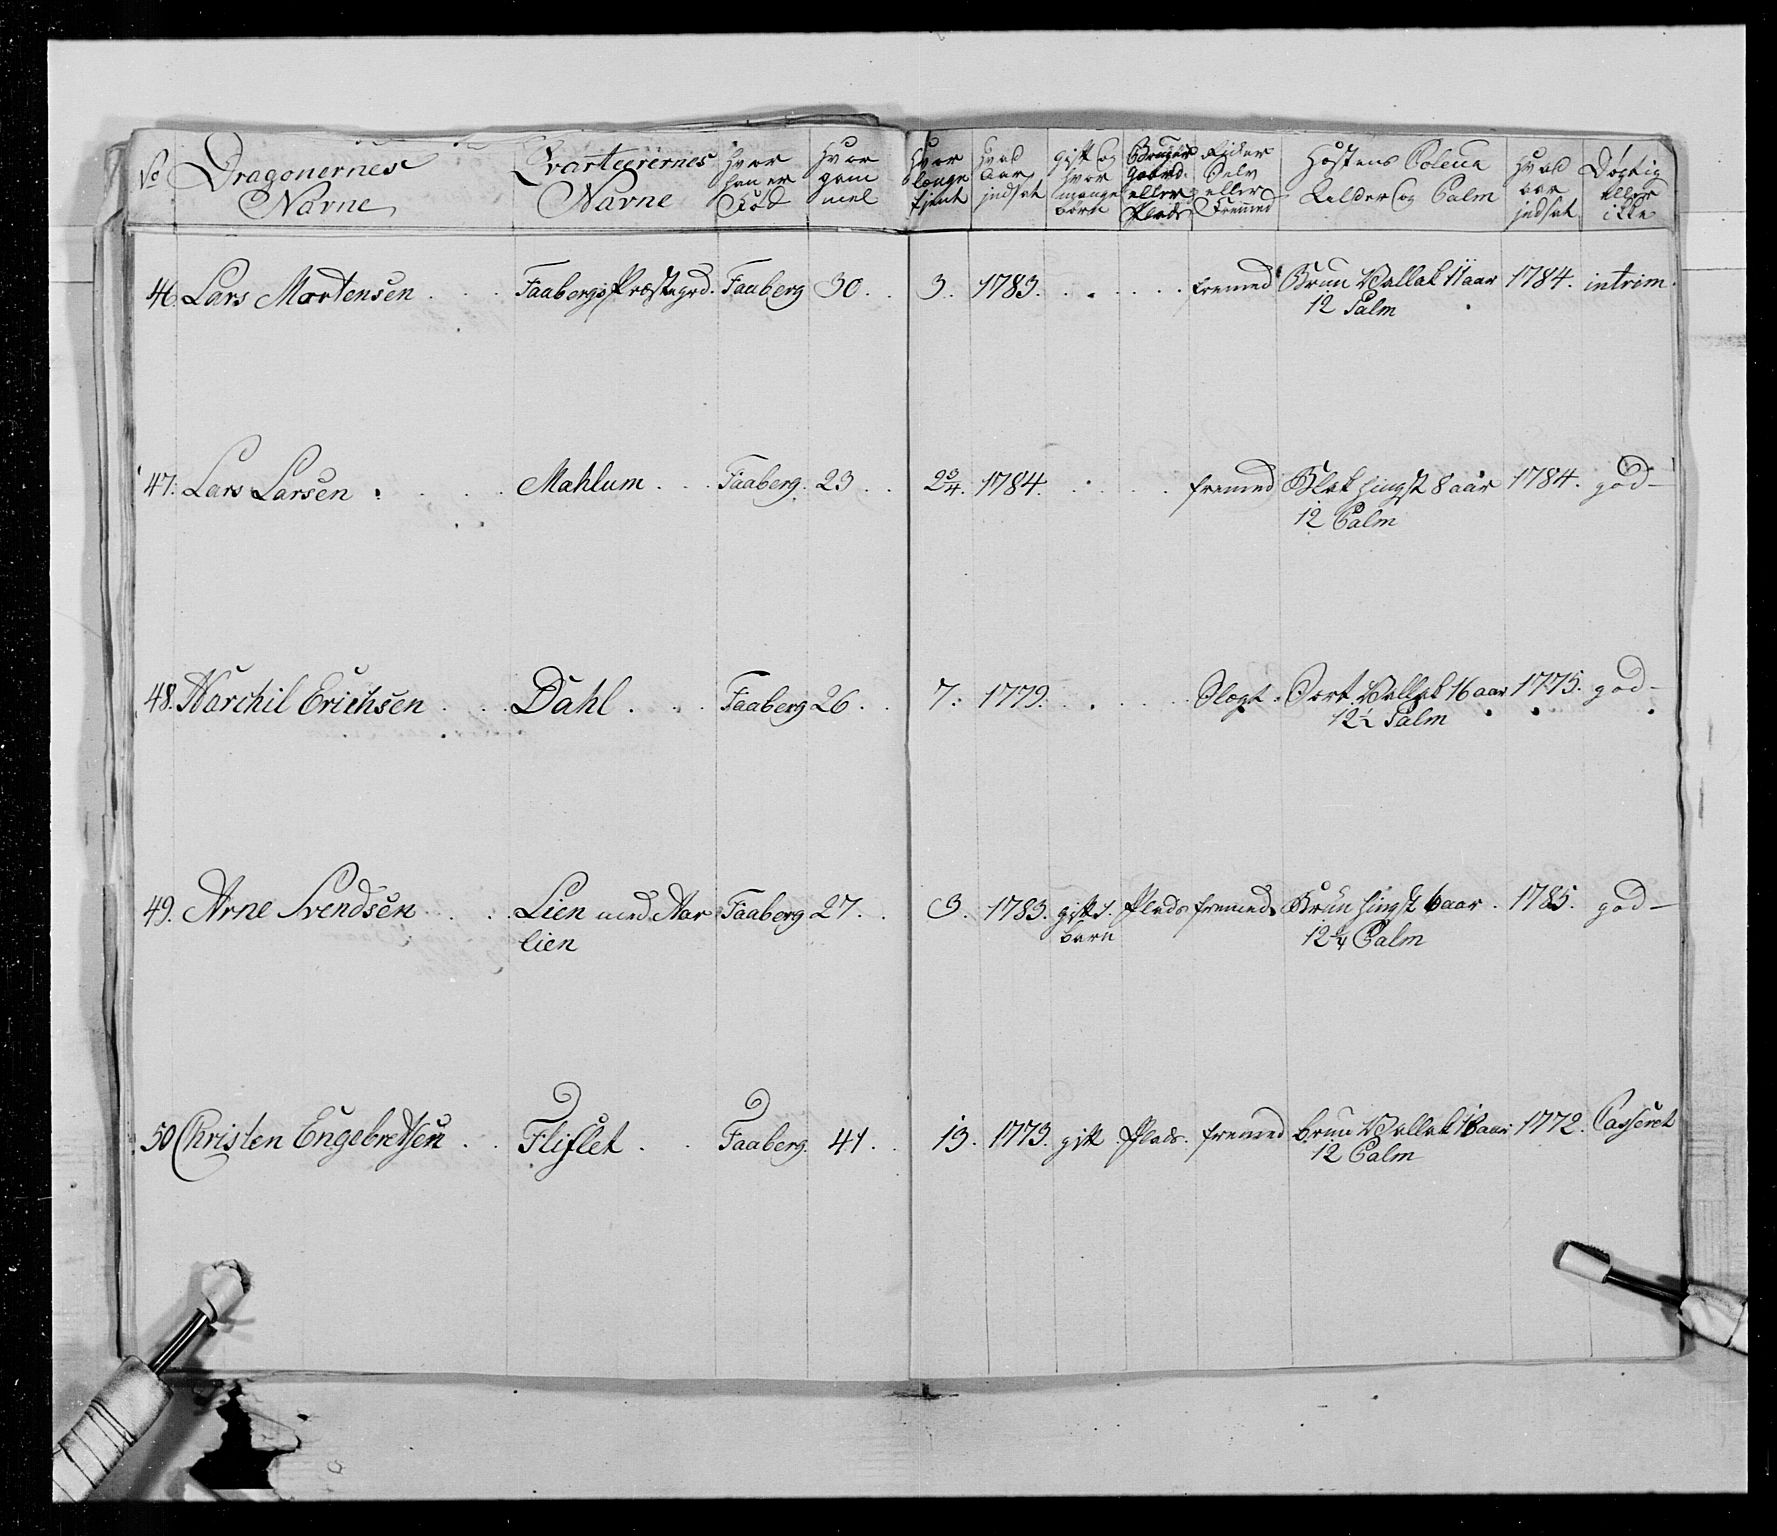 No Dragonernes Navne Qvarteerernes Navne Hvor han er Fød Hvor gam mel Hvor længe tjent Hvad Aar indsat gift og hvor mange børn Bruger Gaard eller Plads Selv eller Fremmed Hæstens Coleur Alder og Palm Hvad aar indsat Dygtig eller ikke
46. Lars Mortensen Faabergs Præstegrd. Faaberg 30 3. 1783. fremed Brun Vallak 11 aar 1784. intrim.
12 Palm
47. Lars Larsen Mahlum Faaberg. 23 2 3/4. 1784. fremed Blak hingst 8 aar 1784. god
12 Palm
48. Erichsen Dahl Faaberg 26 7. 1779. Sort Vallak 16 aar 1775. god
12 1/2 Palm
49. Arne Svendsen Lien med Aar Faaberg 27. 3. 1783. gift 1. Plads fremed Brun hingst 6 aar 1785. god
lien barn 12 1/4 Palm
50 Christen Engebretsen Fliflet Faaberg. 41. 13. 1773. gift Plads. fremed brun Vallak 16 aar 1772. Casseret
12 Palm